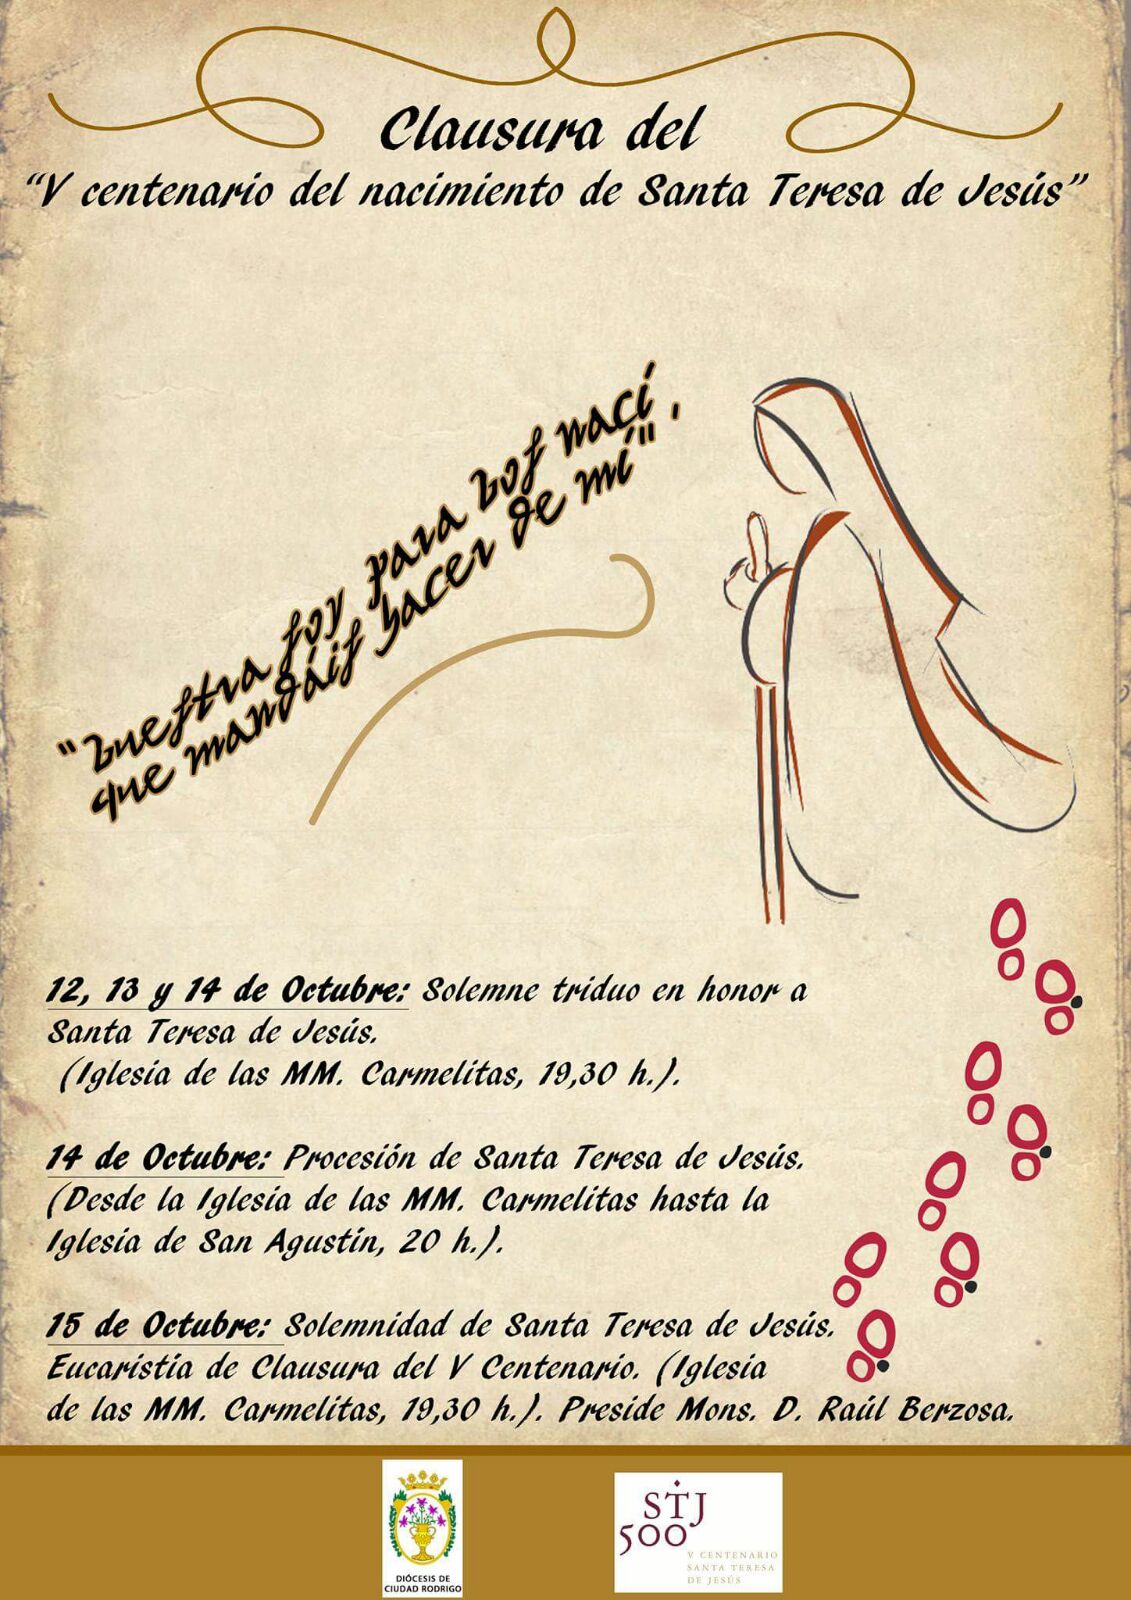 Clausura del
“V centenario del nacimiento de Santa Teresa de Jesús”
"Vuestra soy para vos nací,
que mandáis hacer de mí".
12, 13 y 14 de Octubre: Solemne triduo en honor a
Santa Teresa de Jesús.
(Iglesia de las MM. Carmelitas, 19,30 h.).
14 de Octubre: Procesión de Santa Teresa de Jesús.
(Desde la Iglesia de las MM. Carmelitas hasta la
Iglesia de San Agustín, 20 h.).
15 de Octubre: Solemnidad de Santa Teresa de Jesús.
Eucaristía de Clausura del V Centenario. (Iglesia
de las MM. Carmelitas, 19,30 h.). Preside Mons. D. Raúl Berzosa.
DIÓCESIS DE
CIUDAD RODRIGO
STJ
500
V CENTENARIO
SANTA TERESA
DE JESÚS